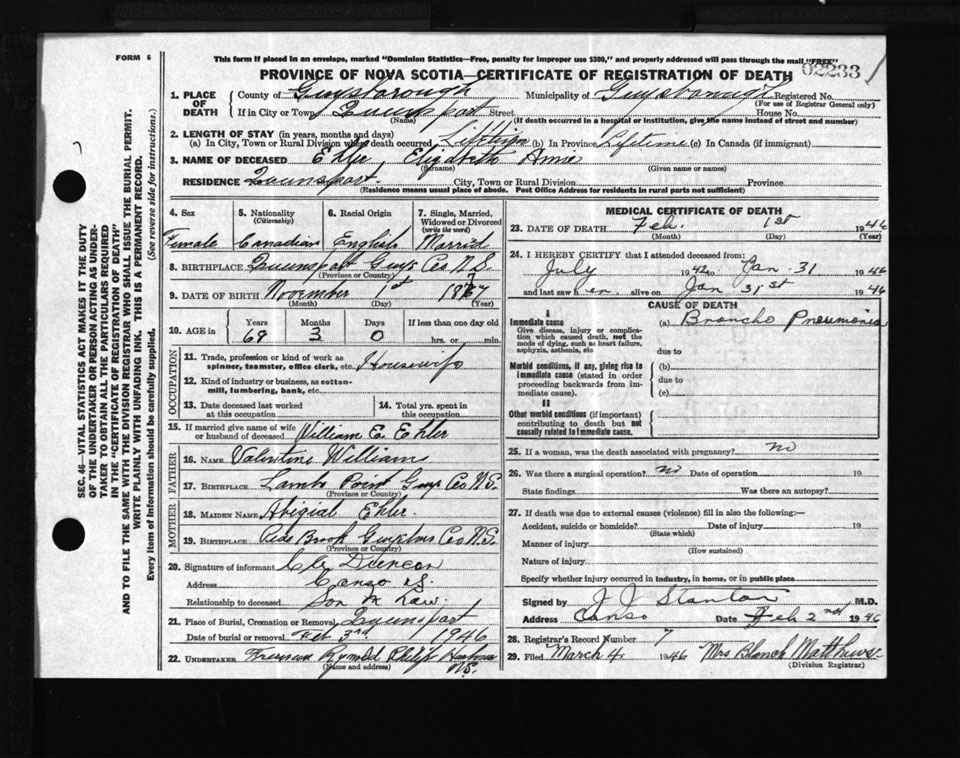 FORM 6
This form if placed in an envelope, marked "Dominion Statistics—Free, penalty for improper use $300," and properly addressed will pass through the mail "FREE"
PROVINCE OF NOVA SCOTIA—CERTIFICATE OF REGISTRATION OF DEATH
02233
1. PLACE OF DEATH
County of Guysborough Municipality of Guysborough Registered No.
(For use of Registrar General only)
If in City or Town Queensport Street House No.
(Name) (If death occurred in a hospital or institution, give the name instead of street and number)
2. LENGTH OF STAY (in years, months and days)
(a) In City, Town or Rural Division where death occurred Lifetime (b) In Province Lifetime (c) In Canada (if immigrant)
3. NAME OF DECEASED Ehler Elizabeth Annie
(Surname) (Given name or names)
RESIDENCE Queensport City, Town or Rural Division Province
(Residence means usual place of abode. Post Office Address for residents in rural parts not sufficient)
4. Sex 5. Nationality 6. Racial Origin 7. Single, Married,
(Citizenship) Widowed or Divorced
(write the word)
Female Canadian English Married
8. BIRTHPLACE Queensport Guys Co N.S.
(Province or Country)
9. DATE OF BIRTH November 1st
(Month) (Day) (Year)
10. AGE in Years Months Days If less than one day old
69 3 0 hrs. or min.
OCCUPATION
11. Trade, profession or kind of work as
spinner, teamster, office clerk, etc. Housewife
12. Kind of industry or business, as cotton-
mill, lumbering, bank, etc.
13. Date deceased last worked 14. Total yrs. spent in
at this occupation this occupation
15. If married give name of wife
or husband of deceased William E. Ehler
FATHER
16. NAME Valentine Williams
17. BIRTHPLACE Point Guys Co N.S.
(Province or Country)
MOTHER
18. MAIDEN NAME Abigial Ehler
19. BIRTHPLACE Brook Co N.S.
(Province or Country)
20. Signature of informant Duncan
Address Canso N.S.
Relationship to deceased Son in Law.
21. Place of Burial, Cremation or Removal Queensport
Date of burial or removal Feb 3rd 1946
22. UNDERTAKER
(Name and address)
N.S.
MEDICAL CERTIFICATE OF DEATH
23. DATE OF DEATH Feb. 1st 1946
(Month) (Day) (Year)
24. I HEREBY CERTIFY that I attended deceased from:
July 1942 to Jan. 31 1946
and last saw her alive on Jan 31st 1946
CAUSE OF DEATH
I
Immediate cause (a) Broncho Pneumonia
Give disease, injury or complica-
tion which caused death, not the
mode of dying, such as heart failure,
asphyxia, asthenia, etc due to
Morbid conditions, if any, giving rise to (b)
immediate cause (stated in order due to
proceeding backwards from im-
mediate cause). (c)
II
Other morbid conditions (if important)
contributing to death but not
causally related to immediate cause.
25. If a woman, was the death associated with pregnancy? no
26. Was there a surgical operation? no Date of operation 19
State findings Was there an autopsy?
27. If death was due to external causes (violence) fill in also the following:—
Accident, suicide or homicide? Date of injury 19
(State which)
Manner of injury
(How sustained)
Nature of injury
Specify whether injury occurred in industry, in home, or in public place
Signed by J J Stanton M.D.
Address Canso Date Feb 2nd 1946
28. Registrar's Record Number 7
29. Filed March 4 1946 Mrs Blanch Matthews
(Division Registrar)
SEC. 46—VITAL STATISTICS ACT MAKES IT THE DUTY
OF THE UNDERTAKER OR PERSON ACTING AS UNDER-
TAKER TO OBTAIN ALL THE PARTICULARS REQUIRED
IN THE "CERTIFICATE OF REGISTRATION OF DEATH"
AND TO FILE THE SAME WITH THE DIVISION REGISTRAR WHO SHALL ISSUE THE BURIAL PERMIT.
WRITE PLAINLY WITH UNFADING INK. THIS IS A PERMANENT RECORD.
Every item of information should be carefully supplied. (See reverse side for instructions.)